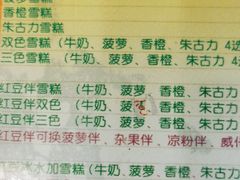 香橙雪糕
朱古力雪糕
双色雪糕(牛奶、菠萝、香橙、朱古力 4选
三色雪糕(牛奶、菠萝、香橙、朱古力 4选
红豆伴雪糕(牛奶、菠萝、香橙、朱古力
红豆伴双色(牛奶、菠萝、香橙、朱古力
红豆伴三色(牛奶、菠萝、香橙、朱古力
红豆伴可换菠萝伴、杂果伴、凉粉伴、威
水加雪糕(牛奶、菠萝、香橙、朱古力